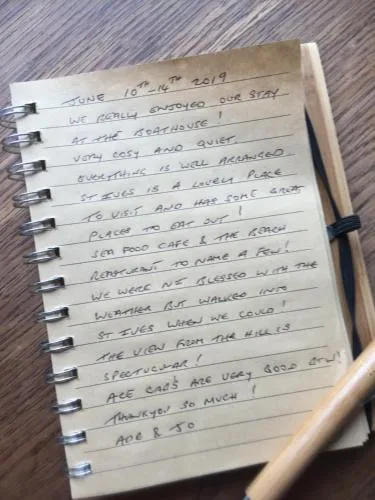 JUNE 10TH-14TH 2019
WE REALLY ENJOYED OUR STAY
AT THE BOATHOUSE!
VERY COSY AND QUIET.
EVERYTHING IS WELL ARRANGED
ST IVES IS A LOVELY PLACE
TO VISIT AND HAS SOME GREAT
PLACES TO EAT OUT!
SEA FOOD CAFE & THE BEACH
RESTURANT TO NAME A FEW!
WE WERE NT BLESSED WITH THE
WEATHER BUT WALKED INTO
ST IVES WHEN WE COULD!
THE VIEW FROM THE HILL IS
SPECTUCULAR!
ACE CABS ARE VERY GOOD BTW!
THANKYOU SO MUCH!
ADE & JO